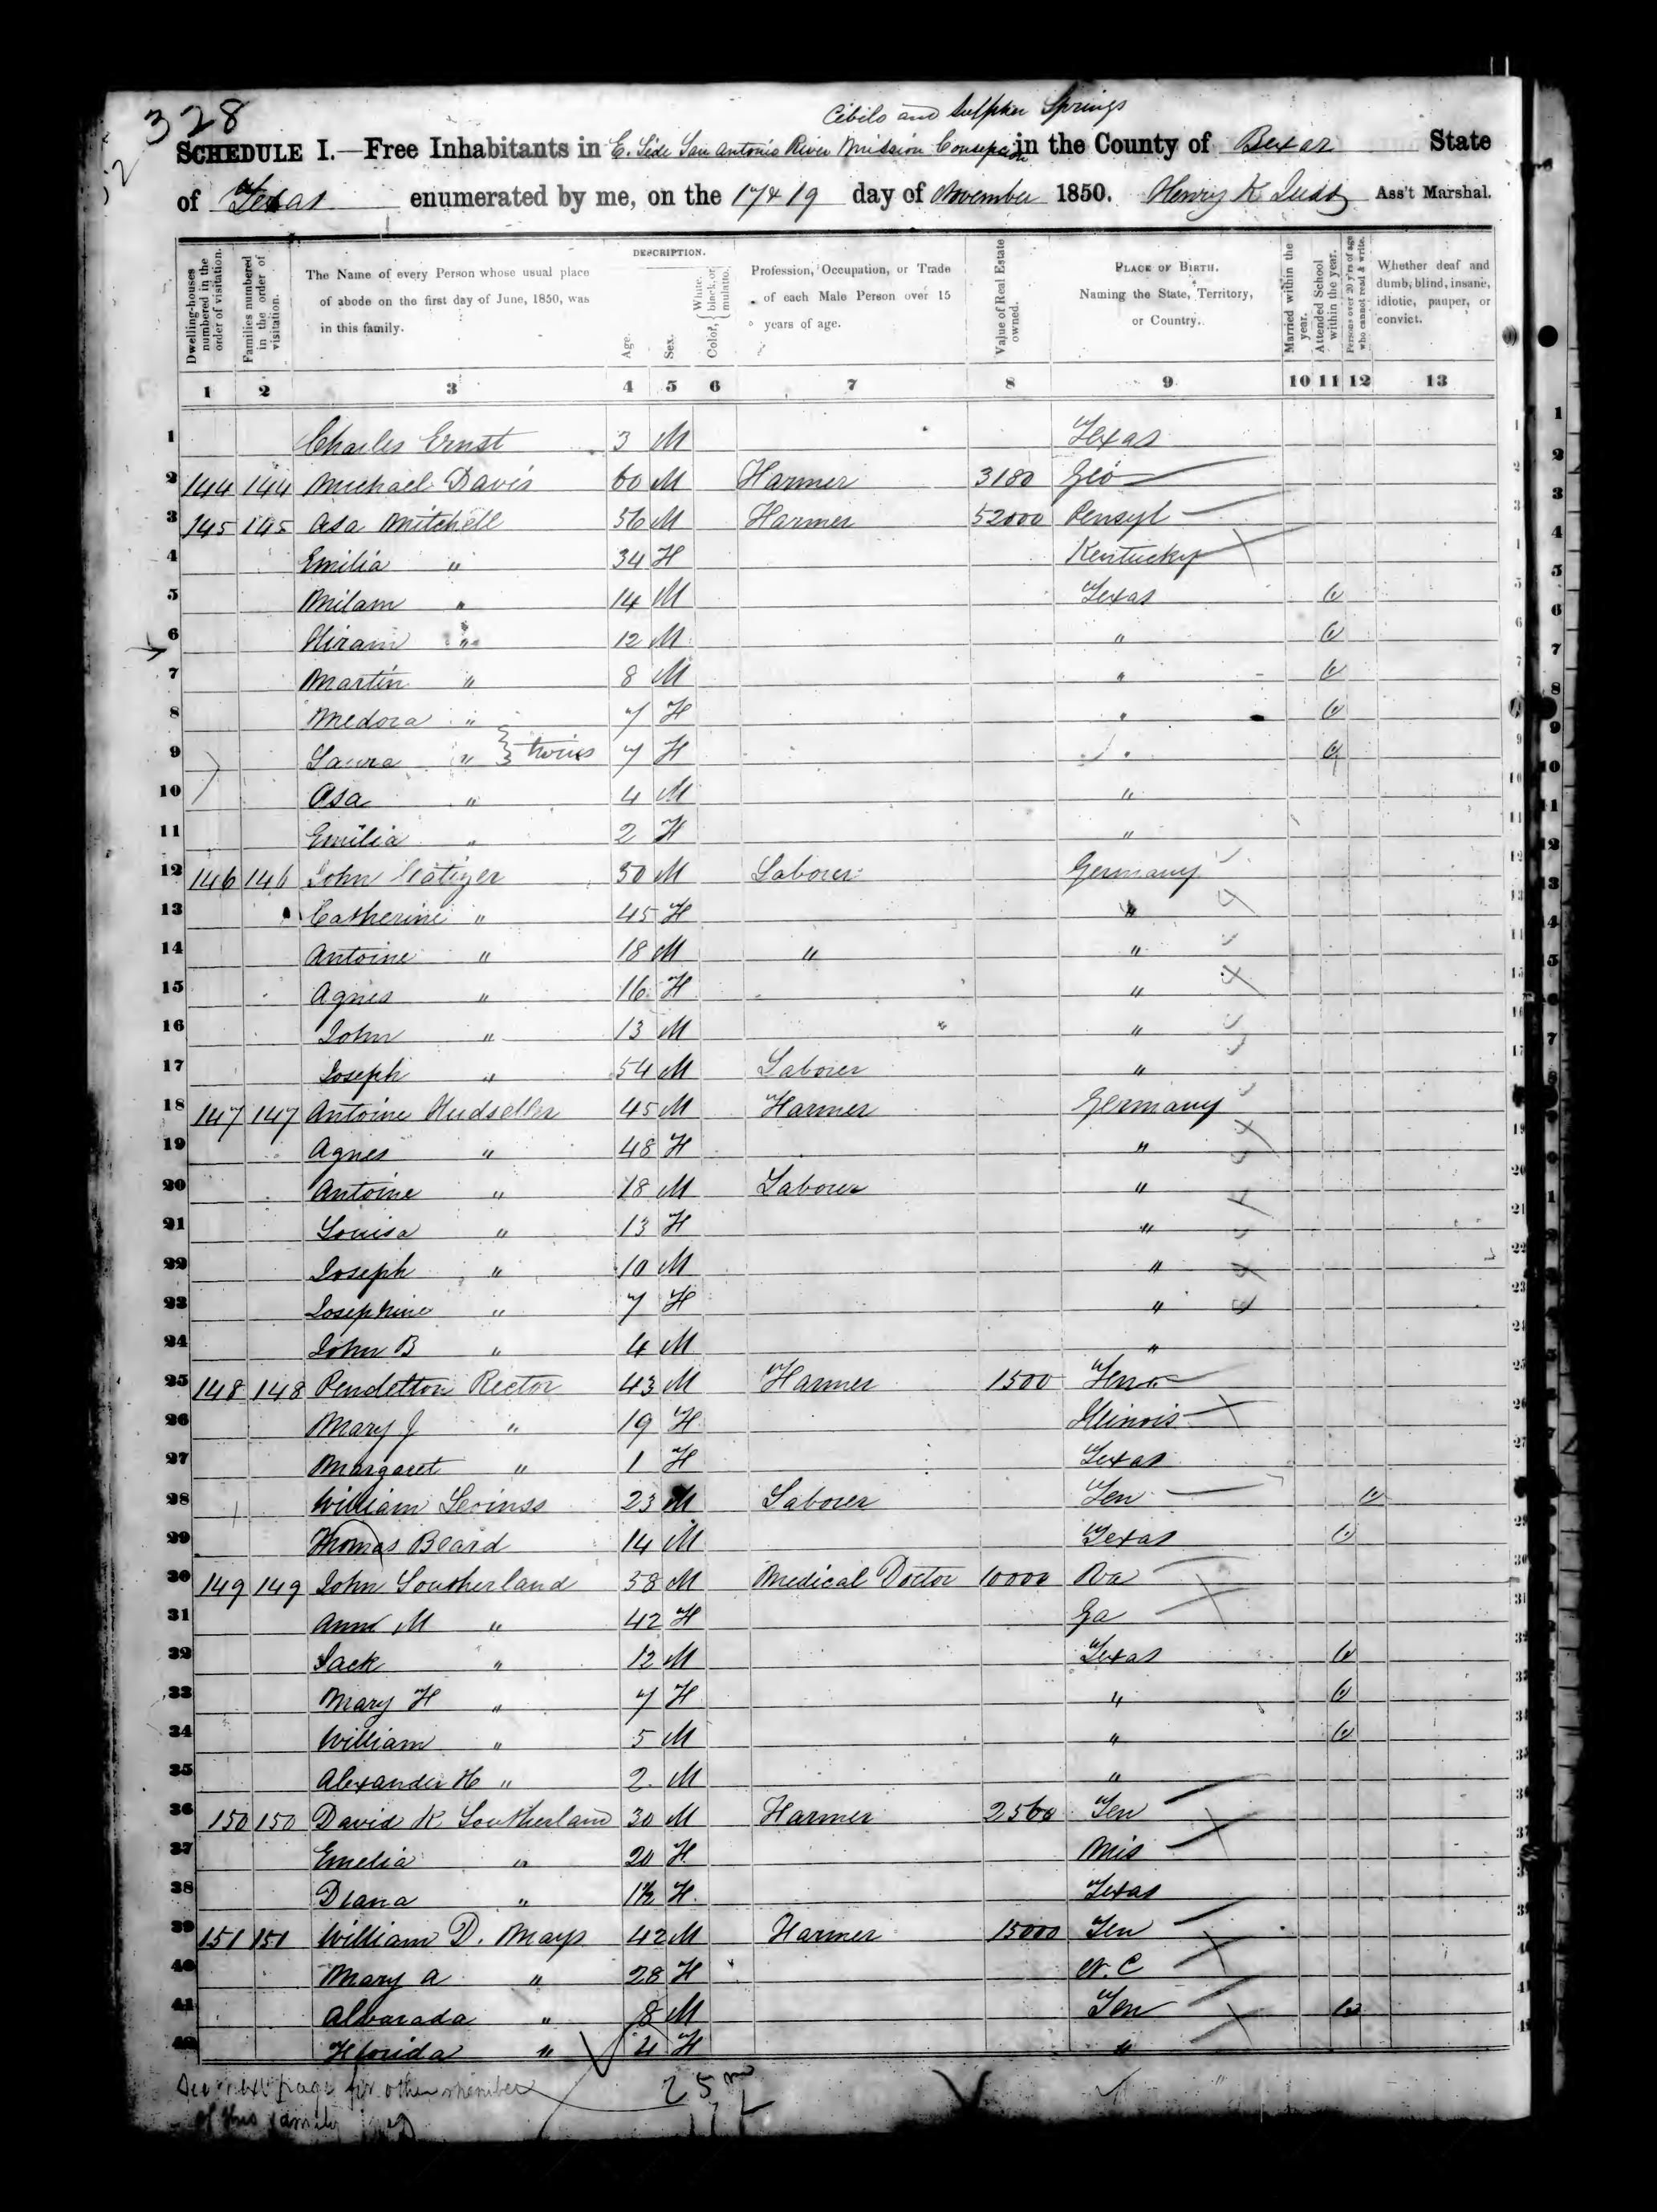 328
Cibilo and Sulpher Springs
SCHEDULE I.—Free Inhabitants in E. Side San Antonio River Mission Consepcion in the County of Bexar State
of Texas enumerated by me, on the 17 & 19 day of November 1850. Henry K Judd Ass't Marshal.
Dwelling-houses numbered in the order of visitation.
Families numbered in the order of visitation.
The Name of every Person whose usual place of abode on the first day of June, 1850, was in this family.
DESCRIPTION.
Age.
Sex.
Color, { White, black, or mulatto.
Profession, Occupation, or Trade of each Male Person over 15 years of age.
Value of Real Estate owned.
PLACE OF BIRTH. Naming the State, Territory, or Country.
Married within the year.
Attended School within the year.
Persons over 20 y'rs of age who cannot read & write.
Whether deaf and dumb, blind, insane, idiotic, pauper, or convict.
1 2 3 4 5 6 7 8 9 10 11 12 13
1 Charles Ernst 3 M Texas
2 144 144 Michael Davis 60 M Farmer 3180 Geo
3 145 145 Asa Mitchell 56 M Farmer 52000 Pensyl
4 Emilia " 34 F Kentucky
5 Milam " 14 M Texas 1
6 Hiram " 12 M " 1
7 Martin " 8 M " 1
8 Medora " 7 F " 1
9 Laura " } twins 7 F " 1
10 Asa " 4 M "
11 Emilia " 2 F "
12 146 146 John 50 M Laborer Germany
13 Catherine " 45 F "
14 Antoine " 18 M " "
15 Agnes " 16 F "
16 John " 13 M "
17 Joseph " 54 M Laborer "
18 147 147 Antoine Hudseller 45 M Farmer Germany
19 Agnes " 48 F "
20 Antoine " 18 M Laborer "
21 Louisa " 13 F "
22 Joseph " 10 M "
23 Josephine " 7 F "
24 John B " 4 M "
25 148 148 Pendelton Rector 43 M Farmer 1500 Tenn
26 Mary J " 19 F Illinois
27 Margaret " 1 F Texas
28 William 23 M Laborer Ten 1
29 Thomas Beard 14 M Texas 1
30 149 149 John Southerland 58 M Medical Doctor 10000 Va
31 Ann M " 42 F Ga
32 Jack " 12 M Texas 1
33 Mary F " 7 F " 1
34 William " 5 M " 1
35 Alexander H " 2 M "
36 150 150 David K Southerland 30 M Farmer 2560 Ten
37 Emelia " 20 F Mis
38 Diana " 1½ F Texas
39 151 151 William D. Mays 42 M Farmer 15000 Ten
40 Mary A " 28 F N. C
41 Alvarada " 8 M Ten 1
42 Florida " 4 F "
See next page for other member
of this family
25 m
17 f